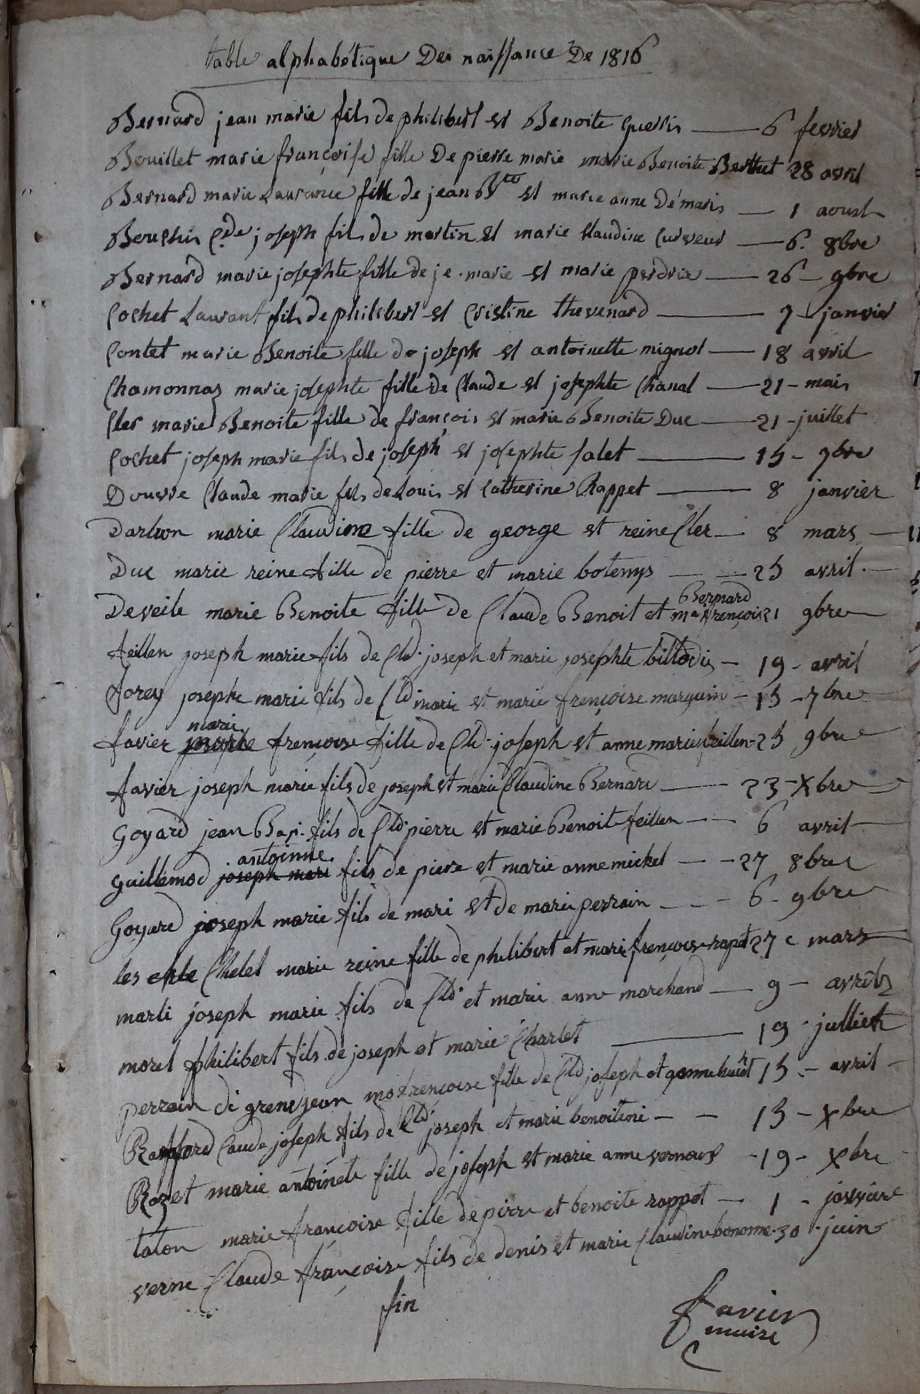 table alphabétique Des naissance De 1816
Bernard jean marie fils de philibert et Benoite guerris 6 fevrier
Bouillet marie françoise fille De pierre marie marie Benoite Berthet 28 avril
Bernard marie Laurance fille de jean Bte et marie anne Démaris 1 aoust
Bouchis Cde joseph fils de martin et marie Claudine Curveur 6. 8bre
Bernard marie josephte fille de je. marie et marie perdrix 26 9bre
Cochet Laurant fils de philibert et Cristine thevenard 7 janvier
Contet marie Benoite fille de joseph et antoinette mignot 18 avril
Chamonnas marie josephte fille de Claude et josephte Chanal 21 mais
Cler marie Benoite fille de françois et marie Benoite Duc 21 juillet
Cochet joseph marie fils de joseph et josephte falet 15 9bre
Douvre Claude marie fils de Louis et Catherine Rappet 8 janvier
Darbon marie Claudine fille de george et reine Cler 8 mars
Duc marie reine fille de pierre et marie botemps 25 avril
Deveile marie Benoite fille de Claude Benoit et
Bernard
ma françoise 21 9bre
feillen joseph marie fils de Cld. joseph et marie josephte billodis 19 avril
forey josephe marie fils de Cld marie et marie françoise marguin 15 7bre
marie
favier josephe françoise fille de Cld. joseph et anne marie feillen 25 9bre
favier joseph marie fils de joseph et marie Claudine Bernard 23 Xbre
goyard jean Bap. fils de Cld pierre et marie Benoit feillen 6 avril
antoinne
guillemod joseph mari fils de piere et marie anne mickel 27 8bre
goyard joseph marie fils de mari et de marie perrain 6 9bre
les Chelet marie reine fille de philibert et marie françoise rapet 27 mars
marli joseph marie fils de Cld. et marie anne marchand 9 avril
morel philibert fils de joseph et marie Charlet 19 julliet
perrain di grend jean françoise fille de Cld joseph et 15 avril
Raffford Claude joseph fils de Cld joseph et marie benoit 15 Xbre
Rozet marie antoinete fille de joseph et marie anne vernoux 19 Xbre
talon marie françoise fille de pirre et benoite rappot 1
verne Claude françoise fils de denis et marie Claudine bonome 30 juin
fin
favier
maire